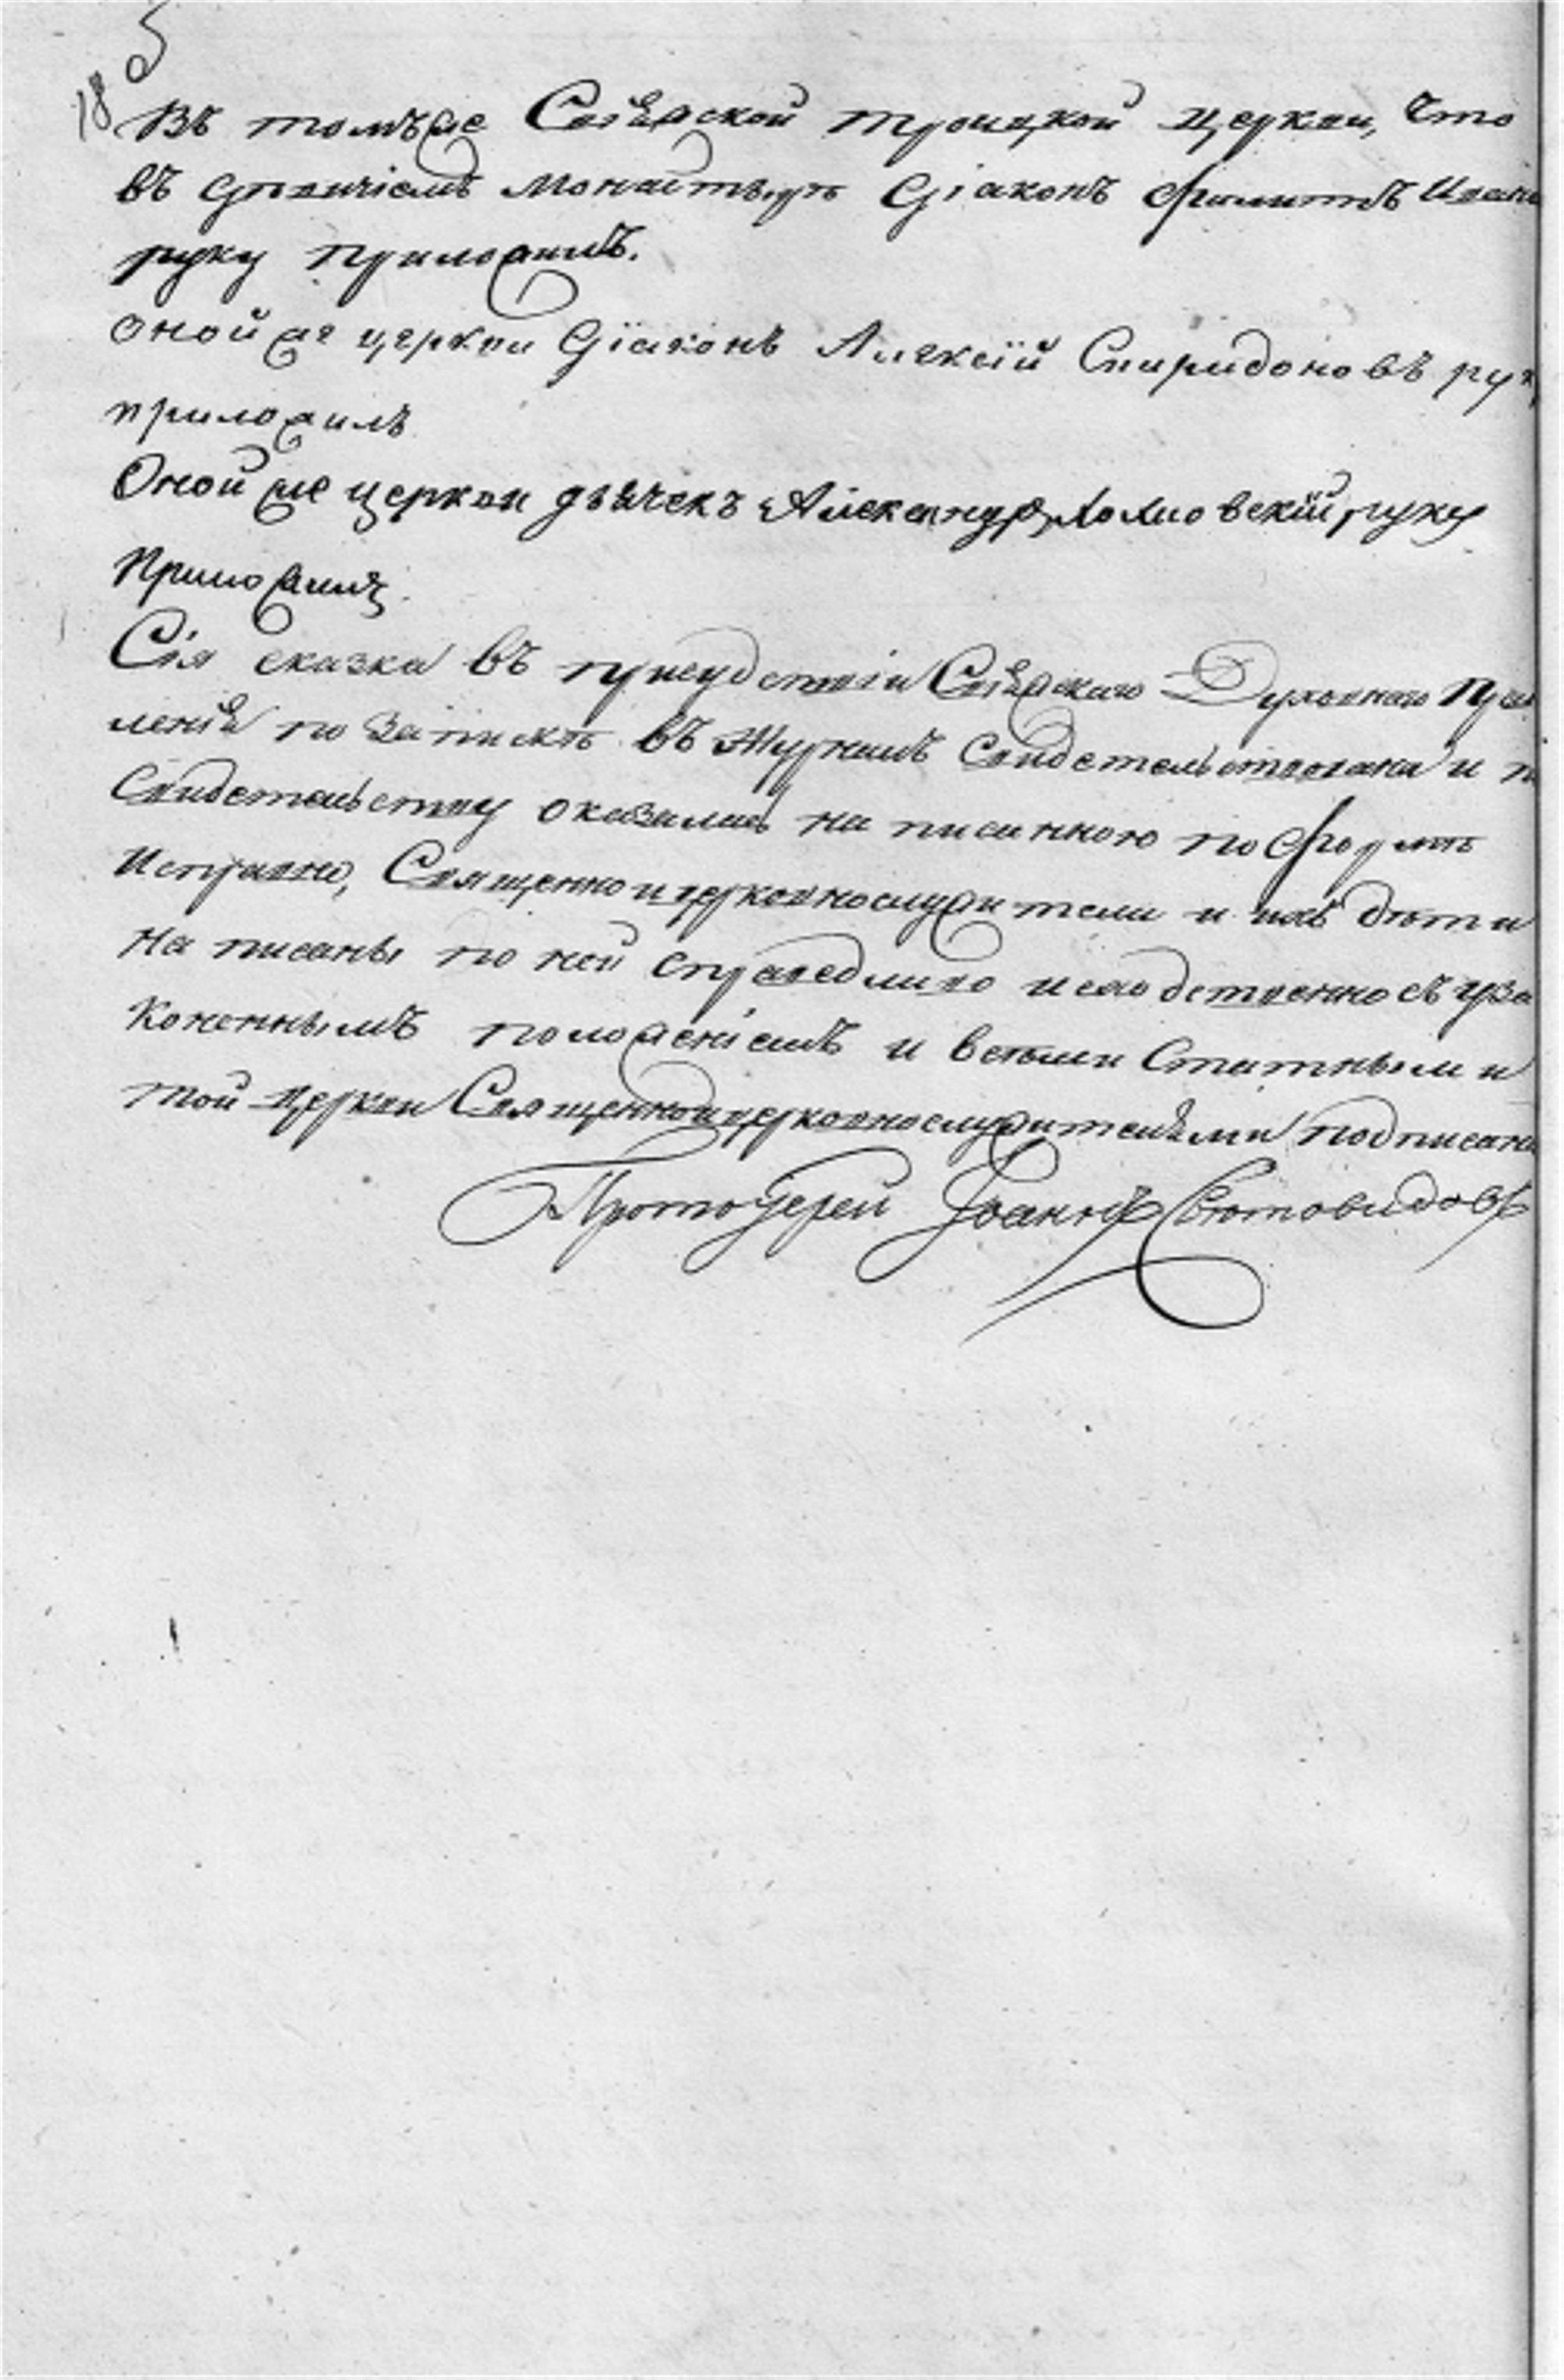 18 об
Въ томъже Свіяжской троицкой церкви, что
въ дѣвичіемъ монастырѣ діаконъ Филиппъ Иван
руку приложилъ.
Оной же церкви діаконъ Алексій Спиридоновъ рук
приложилъ
Оной же церкви дьячекъ Александръ руку
Приложилъ.
Сія сказка въ присудствіи Свіяжскаго Духовнаго Прав
ленія по запискѣ въ Журналъ Свидетельствована и п
Свидетельству оказалась написанною по Формѣ
Исправно, Священноицерковнослужители и ихъ дѣти
написаны по ней справедливо и сходственно съ уза
коненнымъ положеніемъ и всѣми Статными
той церкви Священноицерковнослужителями подписана
Протоіерей Іоаннъ Свѣтовидовъ